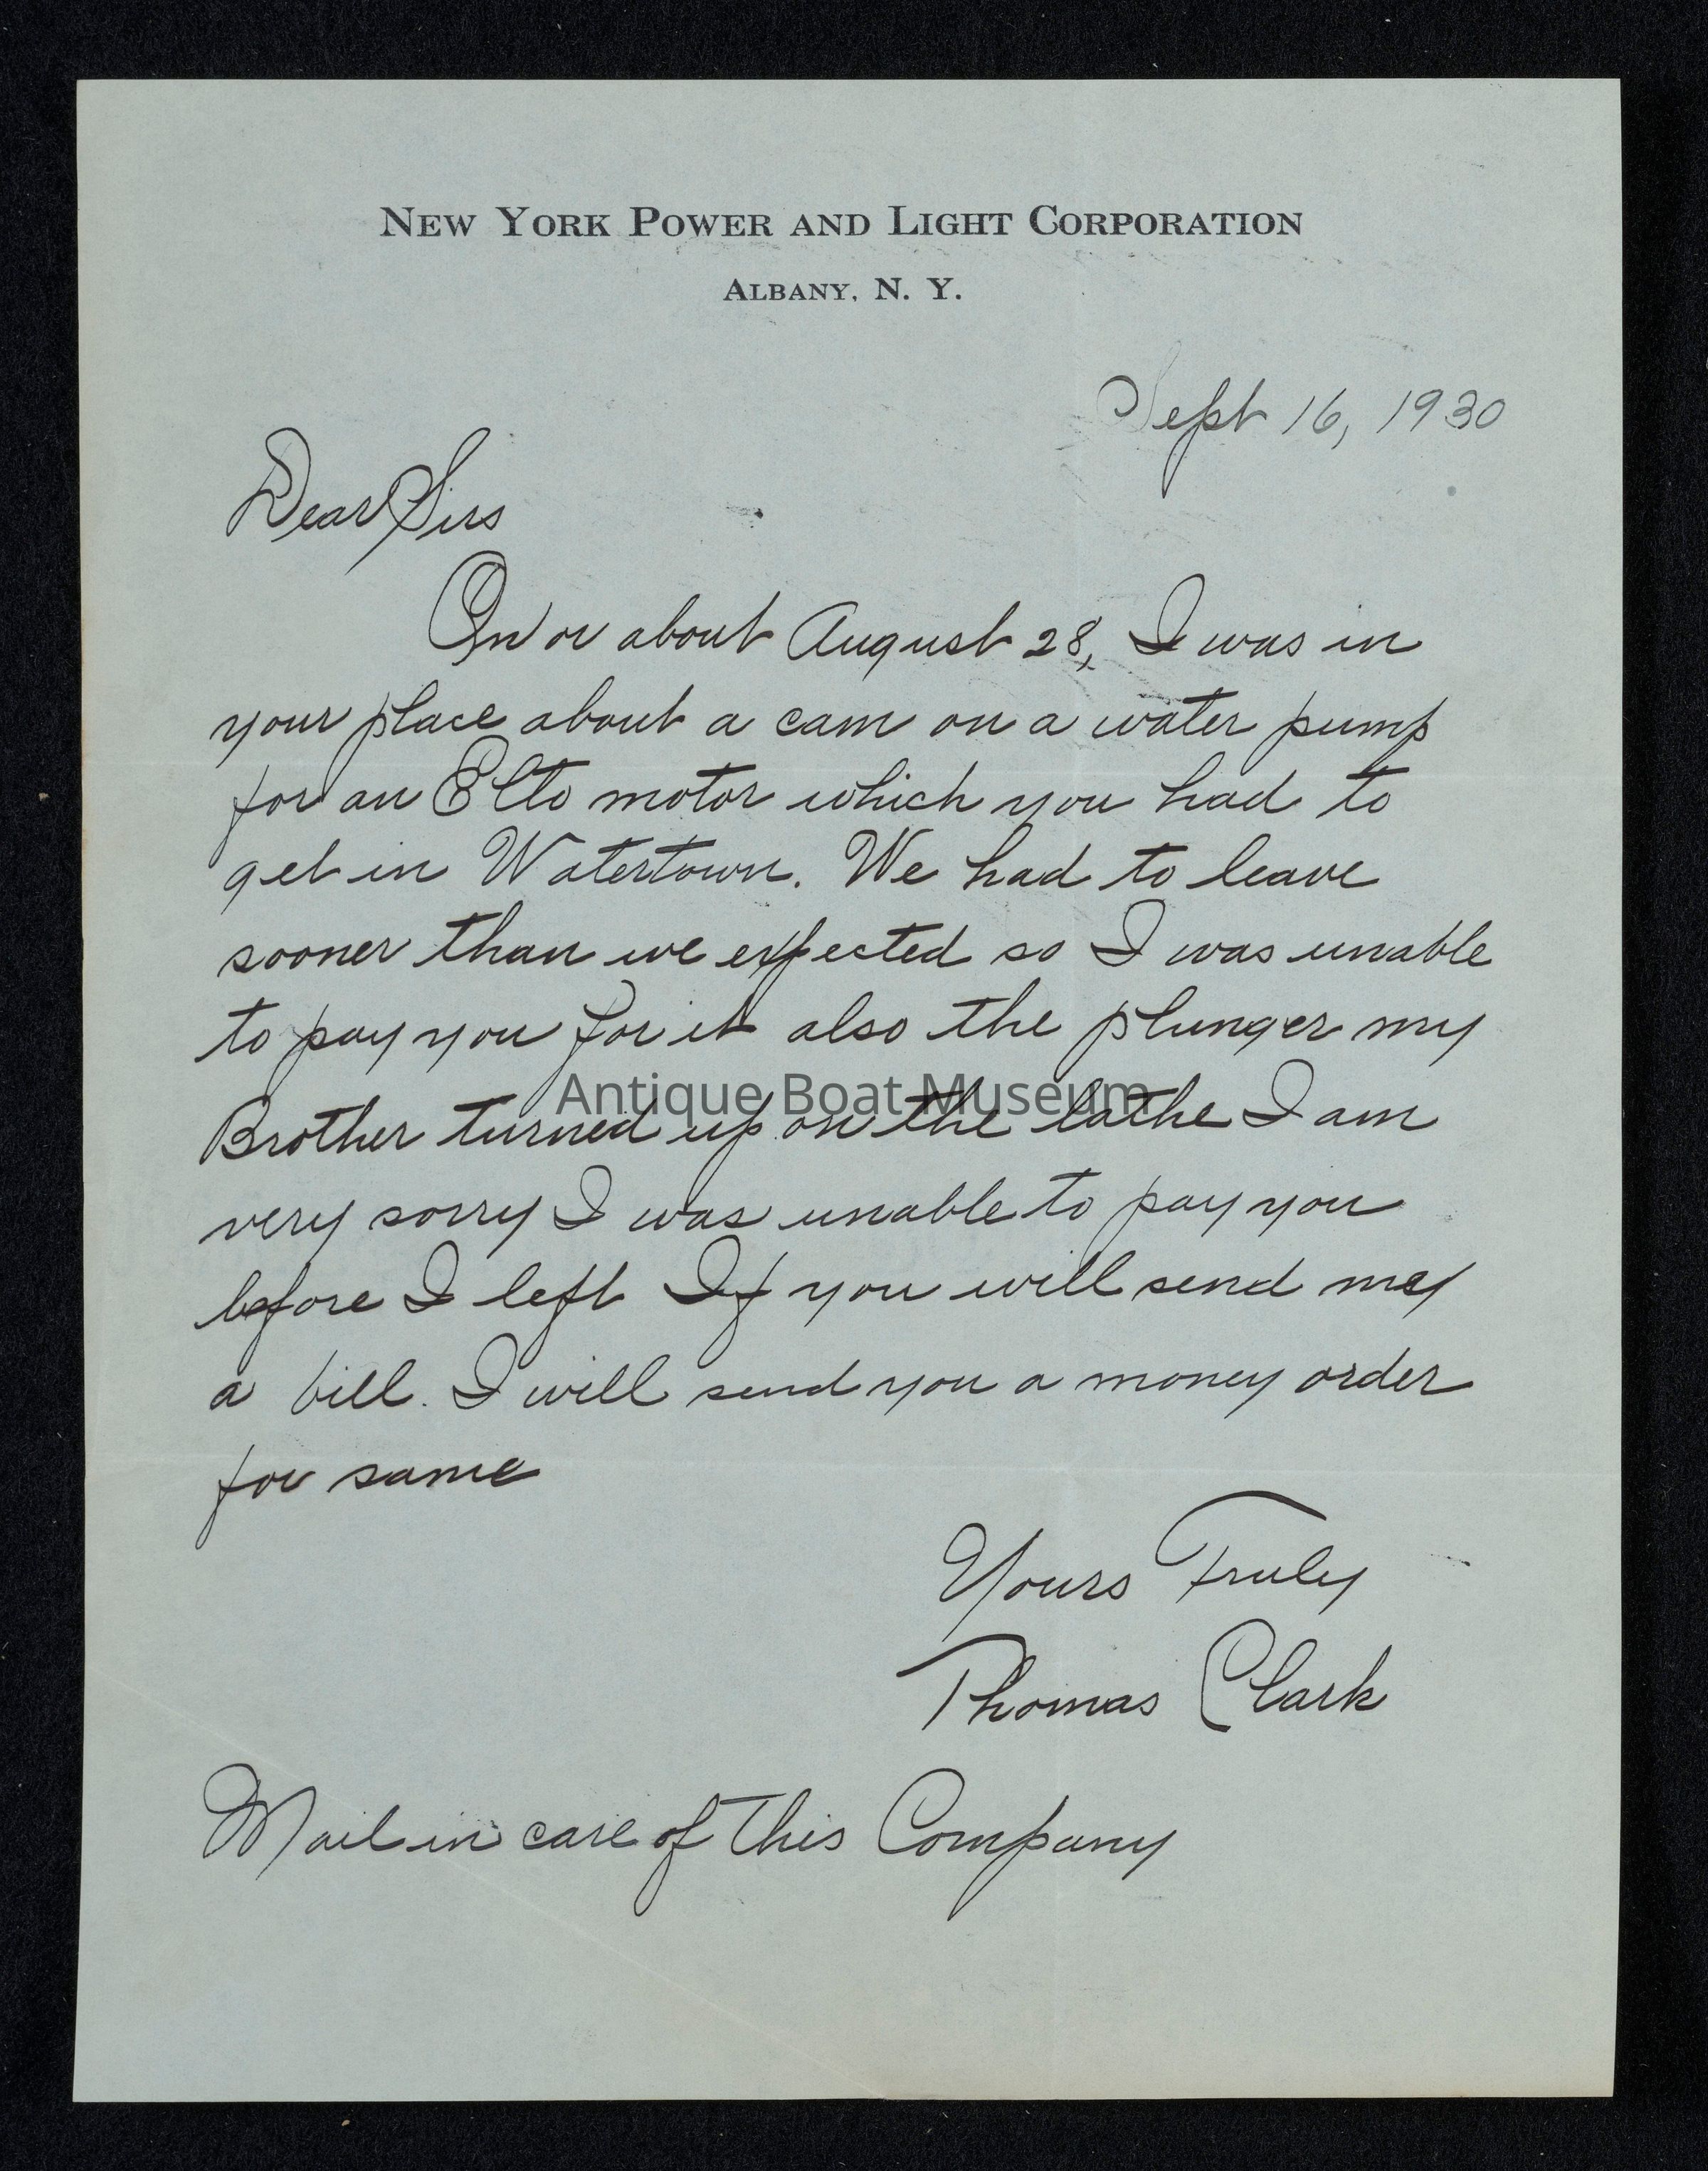 NEW YORK POWER AND LIGHT CORPORATION
ALBANY, N. Y.
Sept 16, 1930
Dear Sirs
On or about August 28, I was in
your place about a cam on a water pump
for an Elto motor which you had to
get in Watertown. We had to leave
sooner than we expected so I was unable
to pay you for it also the plunger my
Antique Boat Museum
Brother turned up on the lathe I am
very sorry I was unable to pay you
before I left If you will send me
a bill. I will send you a money order
for same
Yours Truly
Thomas Clark
Mail in care of This Company